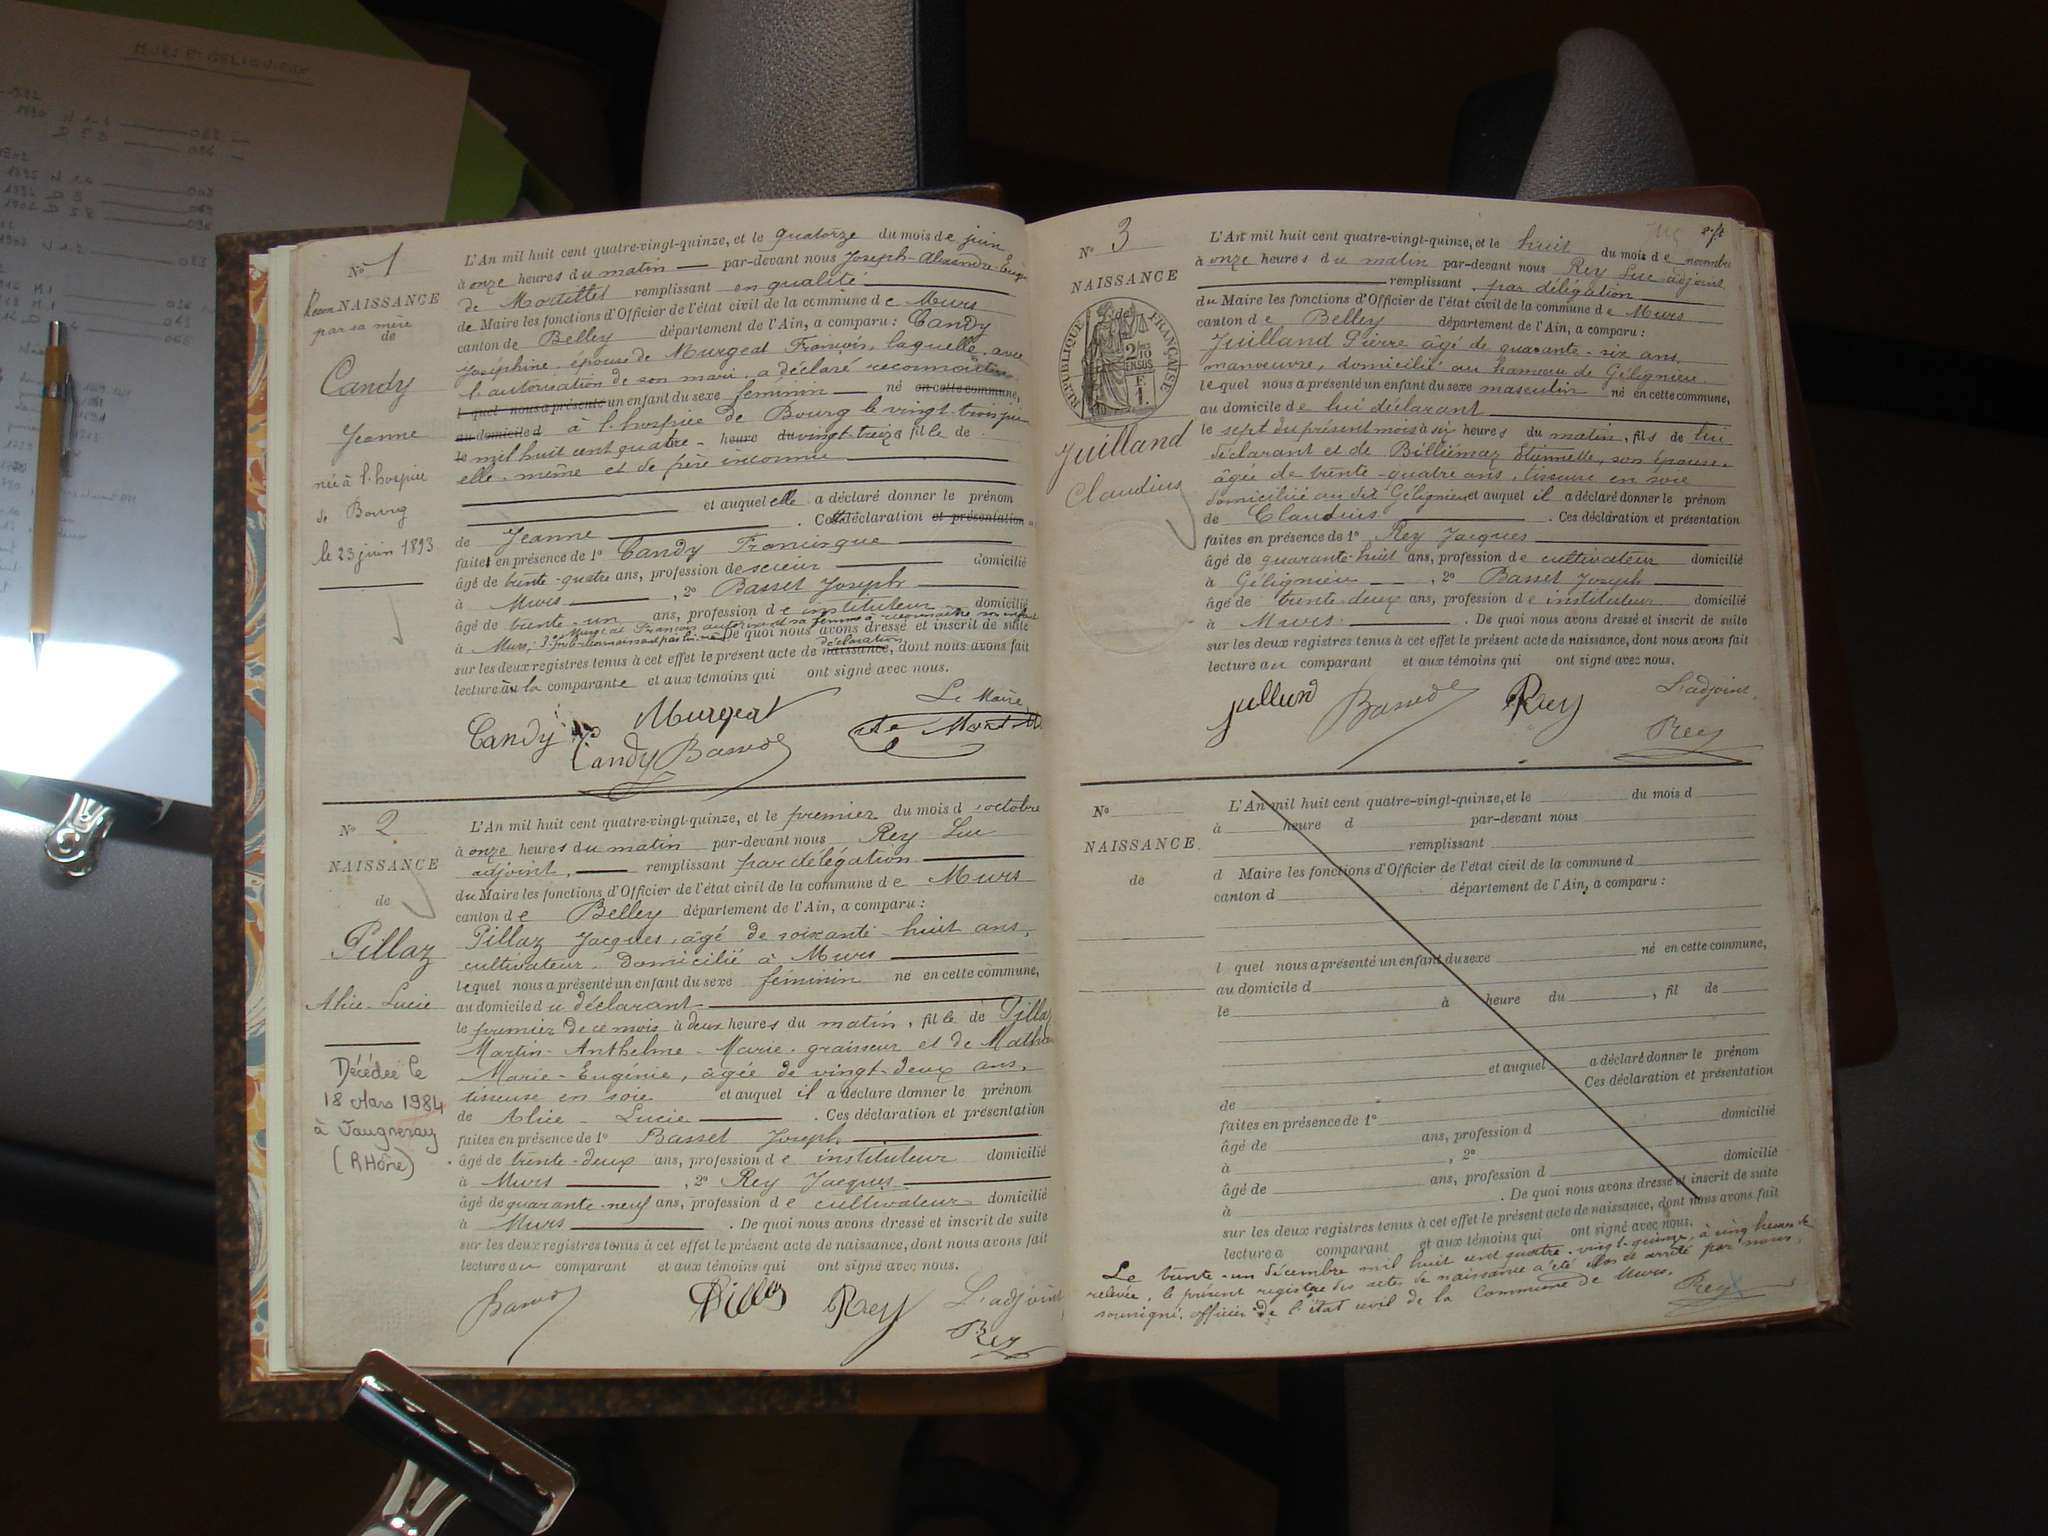 MURS ET GELIGNIEUX
N° 1
Reconn NAISSANCE
par sa mère
de
Candy
Jeanne
née à l'hospice
de Bourg
le 23 juin 1893
L'An mil huit cent quatre-vingt-quinze, et le quatorze du mois de juin
à onze heures du matin par-devant nous Joseph-Alexandre-Eugène
de Mortillet remplissant en qualité
de Maire les fonctions d'Officier de l'état civil de la commune de Murs
canton de Belley département de l'Ain, a comparu : Candy
Joséphine, épouse de Murgeat François, laquelle, avec
l'autorisation de son mari, a déclaré reconnaître
l quel nous a présenté un enfant du sexe féminin né en cette commune,
au domicile d à l'hospice de Bourg le vingt-trois juin
le mil huit cent quatre- heure du vingt-treize fille de
elle-même et de père inconnu
et auquel elle a déclaré donner le prénom
de Jeanne . Cette déclaration et présentation
faite en présence de 1° Candy Francisque
âgé de trente-quatre ans, profession de scieur domicilié
à Murs , 2° Basset Joseph
âgé de trente-un ans, profession de instituteur domicilié
à Murs, 3° Murgeat François autorisant sa femme à reconnaître son enfant
De quoi nous avons dressé et inscrit de suite
sur les deux registres tenus à cet effet le présent acte de naissance, déclaration dont nous avons fait
lecture à la comparante et aux témoins qui ont signé avec nous.
Le Maire
Candy Murgeat
Candy Basset
N° 2
NAISSANCE
de
Pillaz
Alice-Lucie
Décédée le
18 Mars 1984
à Vaugneray
(RHône)
L'An mil huit cent quatre-vingt-quinze, et le premier du mois d'octobre
à onze heures du matin par-devant nous Rey Luc
adjoint, remplissant par délégation
du Maire les fonctions d'Officier de l'état civil de la commune de Murs
canton de Belley département de l'Ain, a comparu :
Pillaz Jacques, âgé de soixante-huit ans,
cultivateur domicilié à Murs
lequel nous a présenté un enfant du sexe féminin né en cette commune,
au domicile du déclarant
le premier de ce mois à deux heures du matin, fille de Pillaz
Martin-Anthelme-Marie, graisseur et de
Marie-Eugénie, âgée de vingt-deux ans,
tisseuse en soie et auquel il a déclaré donner le prénom
de Alice-Lucie . Ces déclaration et présentation
faites en présence de 1° Basset Joseph
âgé de trente-deux ans, profession de instituteur domicilié
à Murs , 2° Rey Jacques
âgé de quarante-neuf ans, profession de cultivateur domicilié
à Murs . De quoi nous avons dressé et inscrit de suite
sur les deux registres tenus à cet effet le présent acte de naissance, dont nous avons fait
lecture au comparant et aux témoins qui ont signé avec nous.
Basset Pillaz Rey L'adjoint
Rey
N° 3
NAISSANCE
de
RÉPUBLIQUE FRANÇAISE
Juilland
Claudius
L'An mil huit cent quatre-vingt-quinze, et le huit du mois de novembre
à onze heures du matin par-devant nous Rey Luc adjoint
remplissant par délégation
du Maire les fonctions d'Officier de l'état civil de la commune de Murs
canton de Belley département de l'Ain, a comparu :
Juilland Pierre âgé de quarante-six ans,
manœuvre, domicilié au hameau de Gélignieu
lequel nous a présenté un enfant du sexe masculin né en cette commune,
au domicile de lui déclarant
le sept du présent mois à six heures du matin, fils de lui
déclarant et de Billiémaz Etiennette, son épouse,
âgée de trente-quatre ans, tisseuse en soie
domiciliée au dit Gélignieu et auquel il a déclaré donner le prénom
de Claudius . Ces déclaration et présentation
faites en présence de 1° Rey Jacques
âgé de quarante-huit ans, profession de cultivateur domicilié
à Gélignieu , 2° Basset Joseph
âgé de trente-deux ans, profession de instituteur domicilié
à Murs . De quoi nous avons dressé et inscrit de suite
sur les deux registres tenus à cet effet le présent acte de naissance, dont nous avons fait
lecture au comparant et aux témoins qui ont signé avec nous.
Basset Rey L'adjoint
Rey
N°
NAISSANCE
de
L'An mil huit cent quatre-vingt-quinze, et le du mois d
à heure d par-devant nous
remplissant
d Maire les fonctions d'Officier de l'état civil de la commune d
canton d département de l'Ain, a comparu :
l quel nous a présenté un enfant du sexe né en cette commune,
au domicile d
le à heure du , fil de
et auquel a déclaré donner le prénom
de Ces déclaration et présentation
faites en présence de 1°
âgé de ans, profession d domicilié
à , 2°
âgé de ans, profession d domicilié
à . De quoi nous avons dressé et inscrit de suite
sur les deux registres tenus à cet effet le présent acte de naissance, dont nous avons fait
lecture a comparant et aux témoins qui ont signé avec nous.
Le trente-un décembre mil huit cent quatre-vingt-quinze, à cinq heures de
relevée, le présent registre des actes de naissance a été clos et arrêté par nous,
soussigné, officier de l'état civil de la Commune de Murs.
Rey